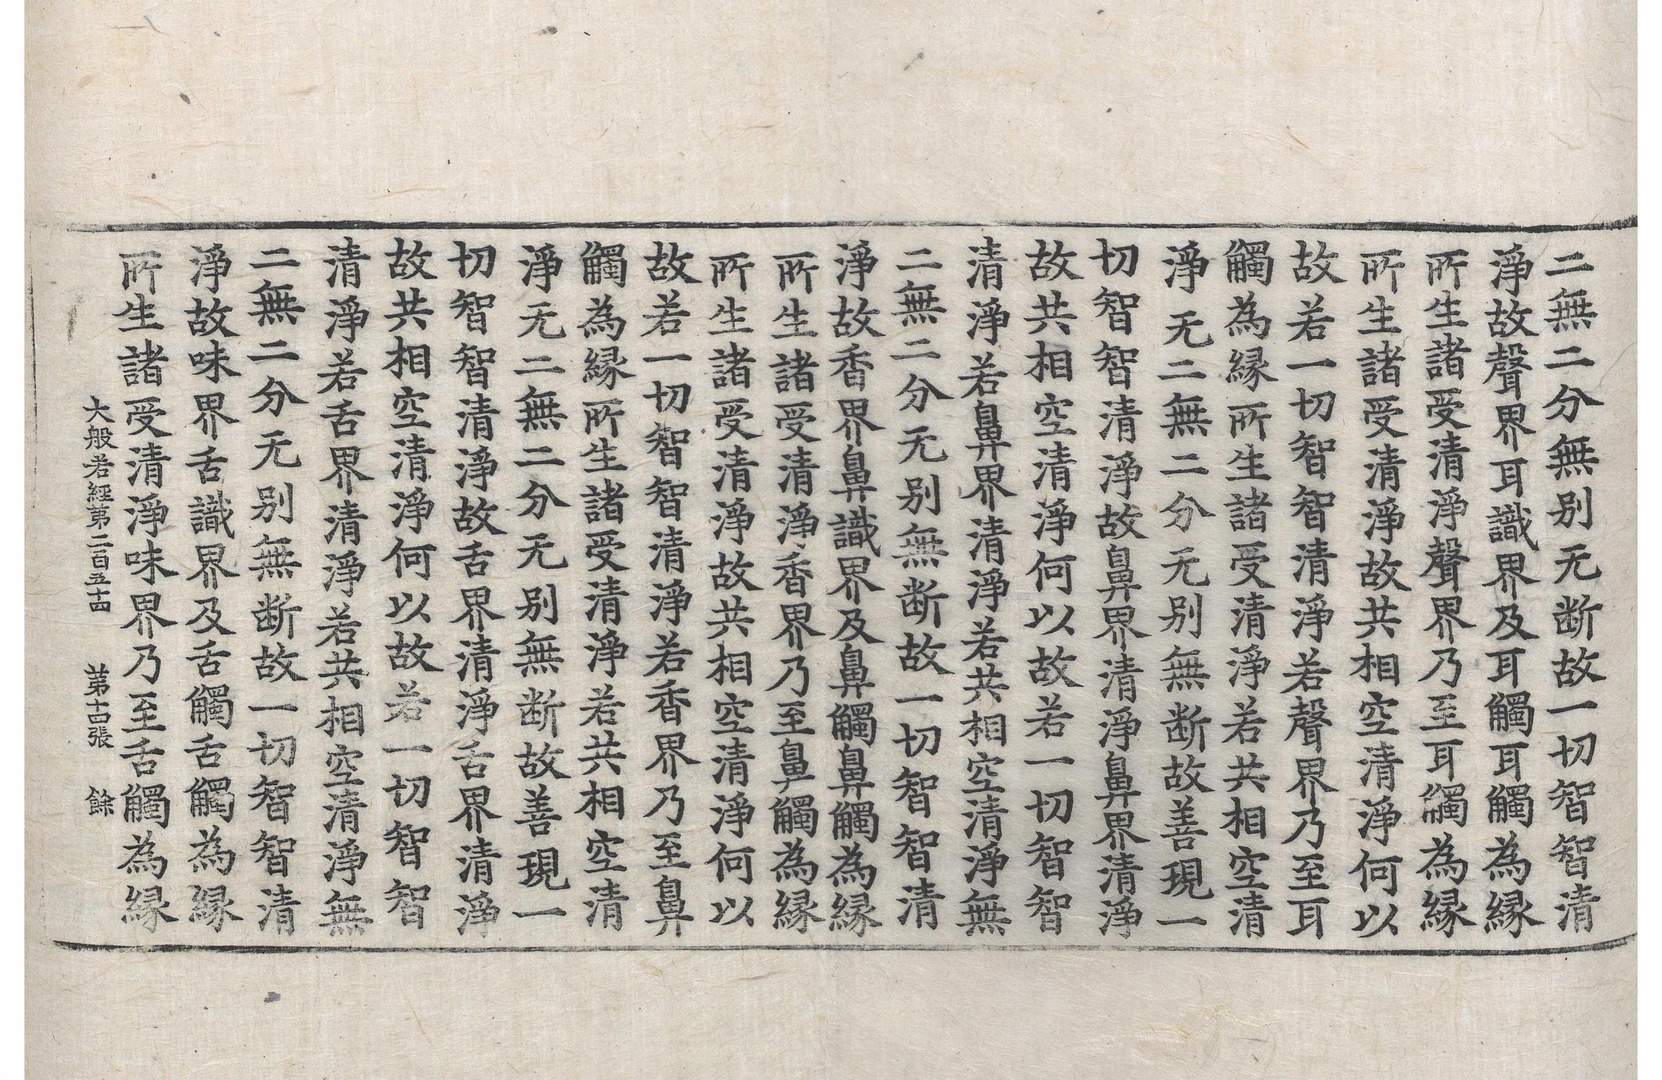 二無二分無別无断故一切智智清
淨故聲界耳識界及耳觸耳觸為縁
所生諸受清淨聲界乃至耳觸為縁
所生諸受清淨故共相空清淨何以
故若一切智智清淨若聲界乃至耳
觸為縁所生諸受清淨若共相空清
淨无二無二分无別無断故善現一
切智智清淨故鼻界清淨鼻界清淨
故共相空清淨何以故若一切智智
清淨若鼻界清淨若共相空清淨無
二無二分无別無断故一切智智清
淨故香界鼻識界及鼻觸鼻觸為縁
所生諸受清淨香界乃至鼻觸為縁
所生諸受清淨故共相空清淨何以
故若一切智智清淨若香界乃至鼻
觸為縁所生諸受清淨若共相空清
淨无二無二分无別無断故善現一
切智智清淨故舌界清淨舌界清淨
故共相空清淨何以故若一切智智
清淨若舌界清淨若共相空清淨無
二無二分无別無断故一切智智清
淨故味界舌識界及舌觸舌觸為縁
所生諸受清淨味界乃至舌觸為縁
大般若經第二百五十四 第十四張 餘